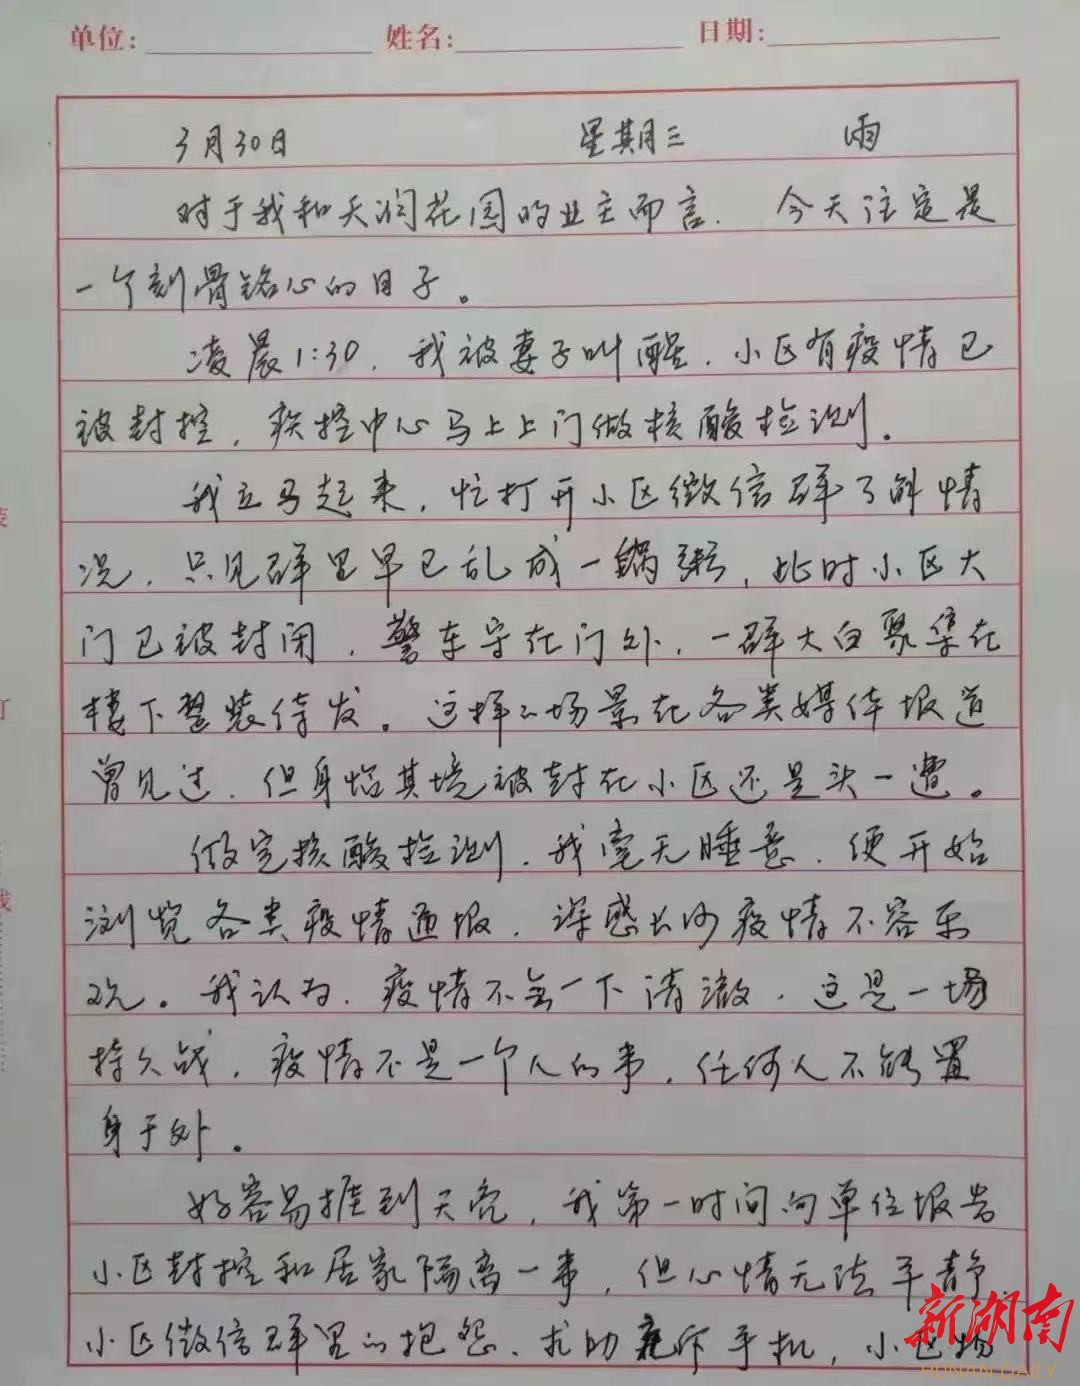 单位: 姓名: 日期:
3月30日 星期三 雨
对于我和天润花园的业主而言. 今天注定是
一个刻骨铭心的日子。
凌晨1:30, 我被妻子叫醒. 小区有疫情已
被封控, 疾控中心马上上门做核酸检测。
我立马起来, 忙打开小区微信群了解情
况, 只见群里早已乱成一锅粥, 此时小区大
门已被封闭, 警车守在门外, 一群大白聚集在
楼下整装待发。这样的场景在各类媒体报道
曾见过, 但身临其境被封在小区还是头一遭。
做完核酸检测, 我毫无睡意, 便开始
浏览各类疫情通报, 深感长沙疫情不容乐
观。我认为, 疫情不会一下清澈, 这是一场
持久战, 疫情不是一个人的事, 任何人不能置
身于外。
好容易捱到天亮, 我第一时间向单位报告
小区封控和居家隔离一事, 但心情无法平静.
小区微信群里的抱怨、求助 手机, 小区物
新湖南
HUNAN DAILY
装
订
线